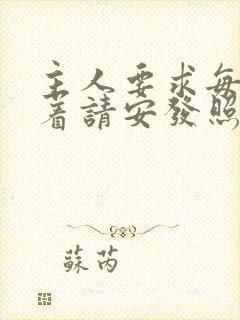 主人要求每
着請安發照
蘇芮